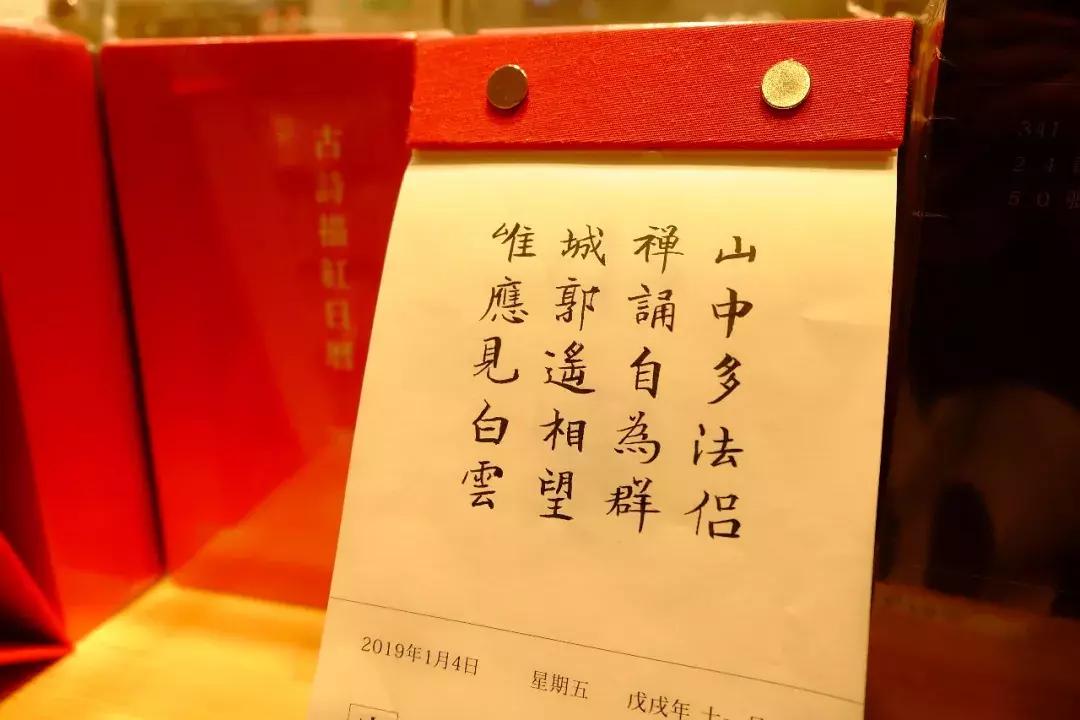 古詩描紅日曆
山中多法侶
禅誦自為群
城郭遙相望
唯應見白雲
2019年1月4日 星期五 戊戌年 十一月
341
24
50張